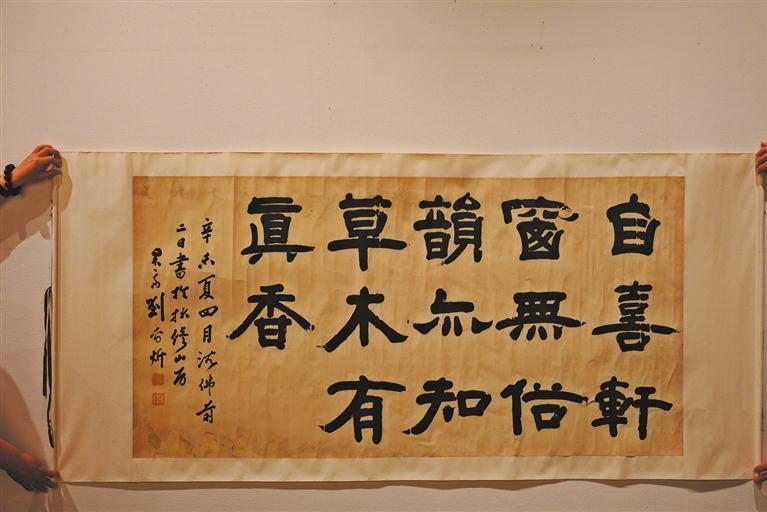 自喜軒
窗無俗
韻亦知
草木有
眞香
辛未夏四月浴佛前
二日書於拙修山房
果齋劉爾炘